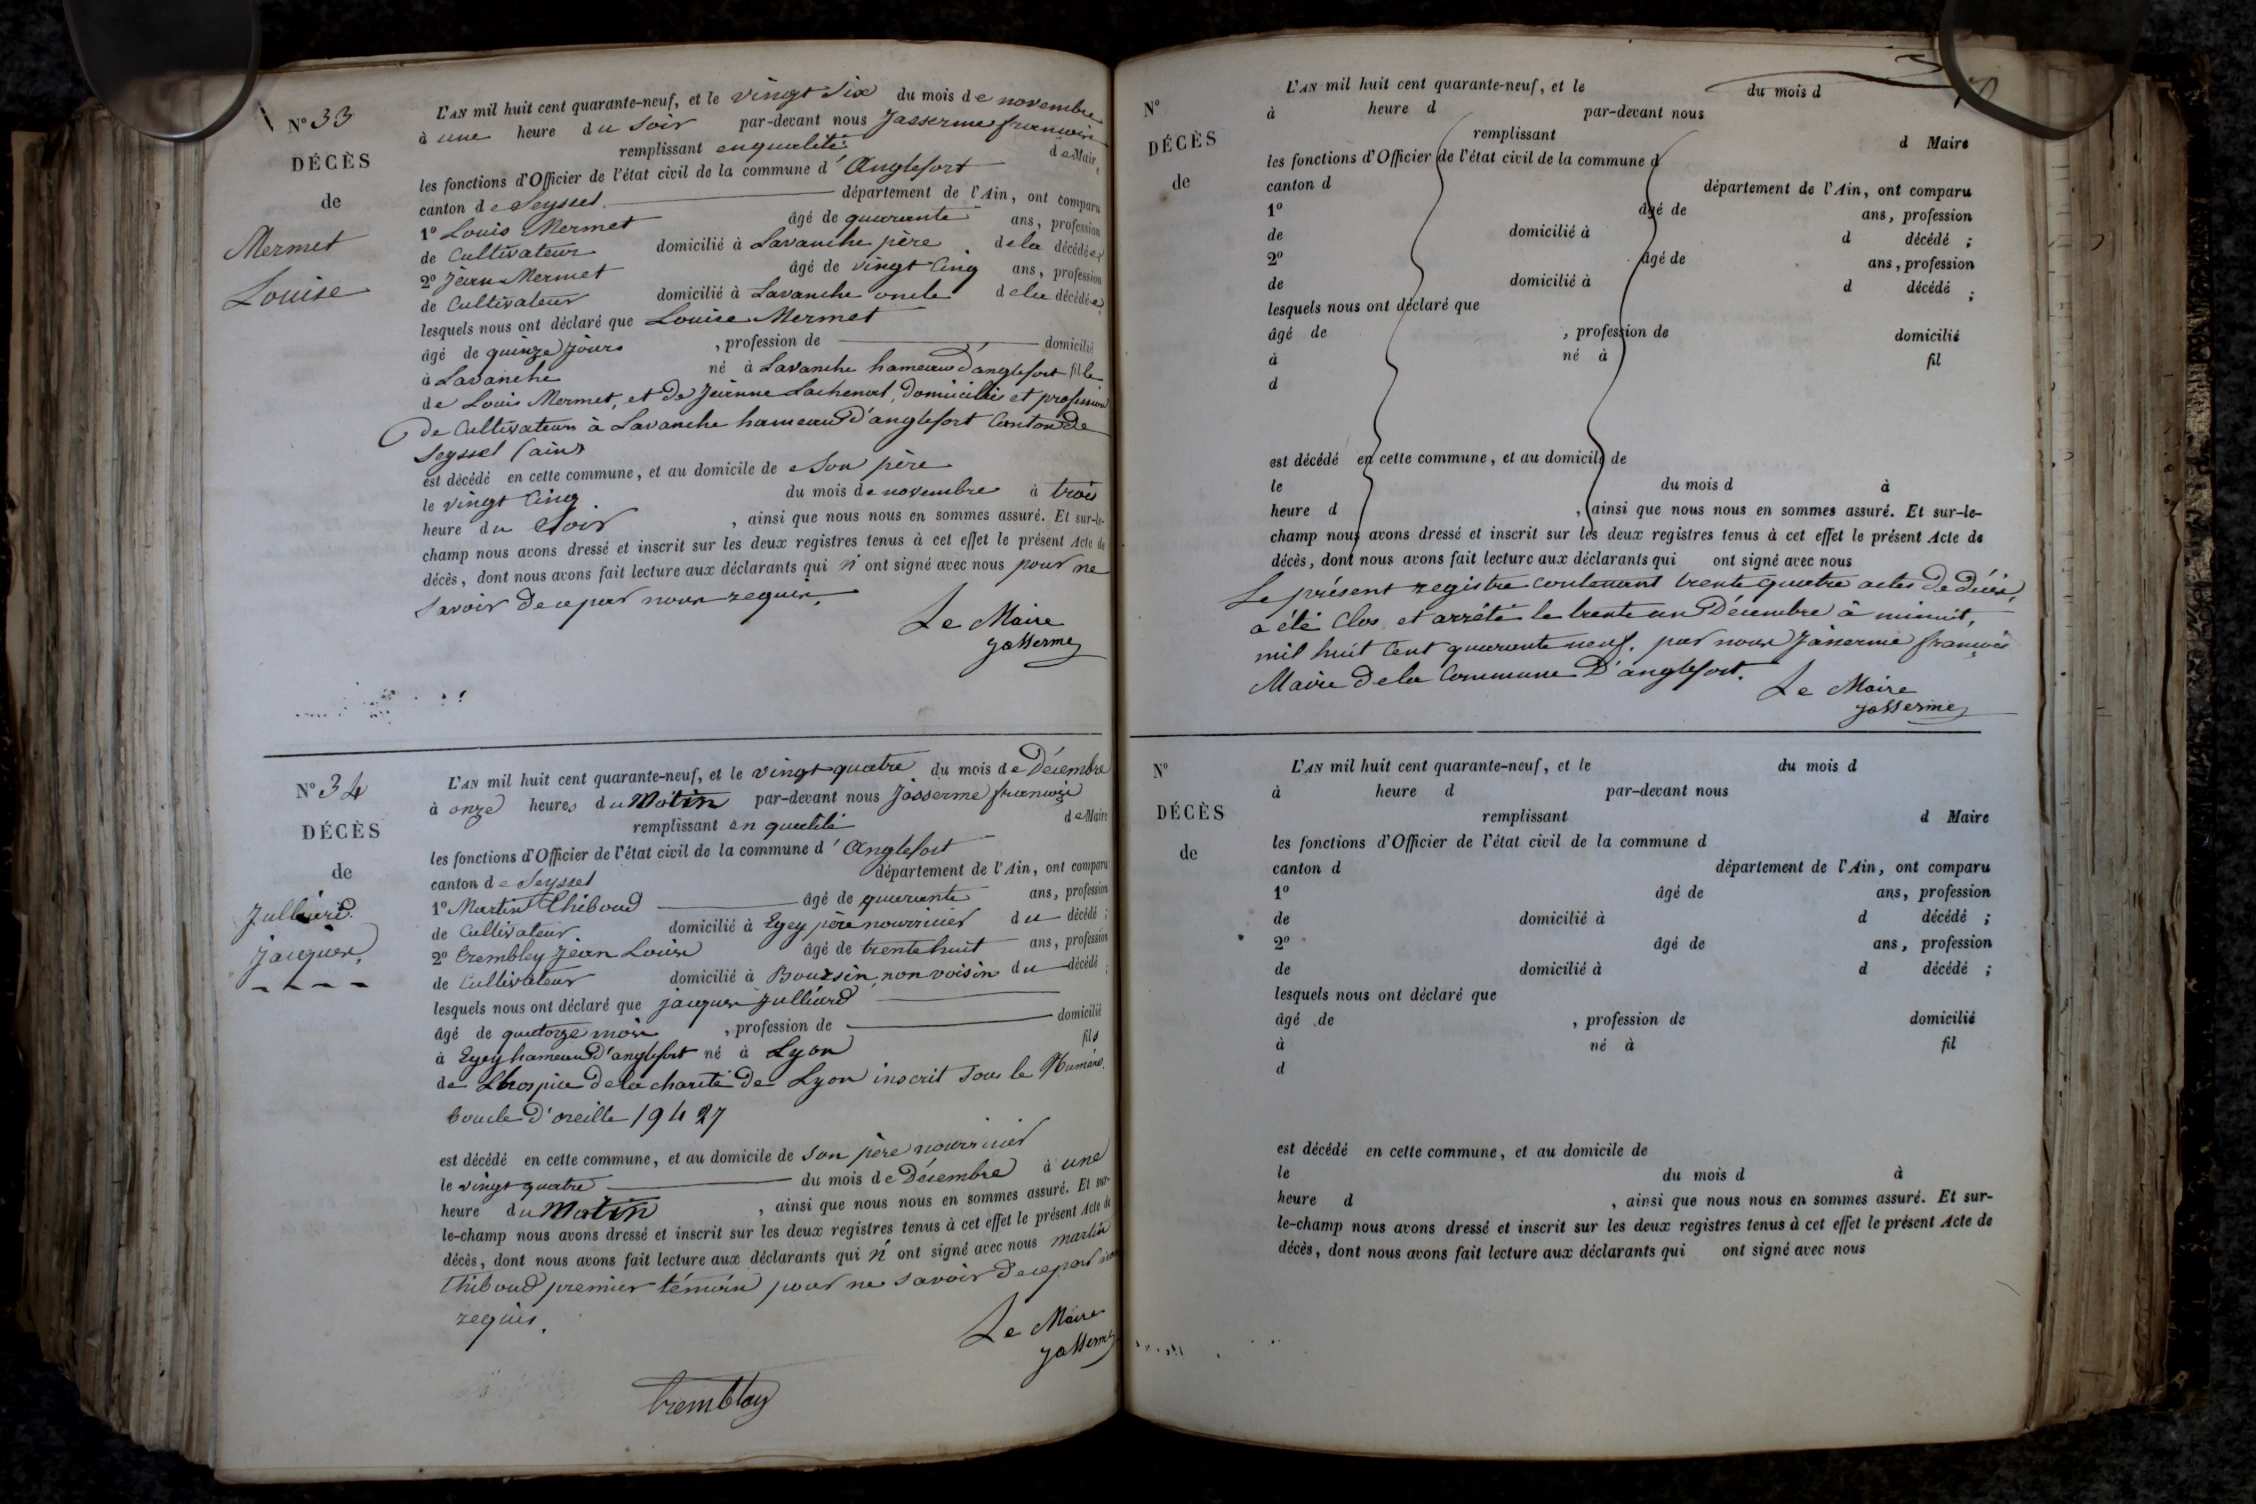 N° 33
DÉCÈS
de
Mermet
Louise
L'AN mil huit cent quarante-neuf, et le vingt Six du mois de novembre
à une heure du Soir par-devant nous Jasserme françois
remplissant enqualité de Maire
les fonctions d'Officier de l'état civil de la commune d'Anglefort
canton de Seyssel département de l'Ain, ont comparu
1° Louis Mermet âgé de quarante ans, profession
de Cultivateur domicilié à Lavanche père de la décédée
2° Jean Mermet âgé de vingt Cinq ans, profession
de Cultivateur domicilié à Lavanche oncle de la décédée
lesquels nous ont déclaré que Louise Mermet
âgé de quinze jours , profession de domicilié
à Lavanche né à Lavanche hameau d'anglefort fille
de Louis Mermet, et de Jeanne Lachenal, domiciliés et profession
de Cultivateurs à Lavanche hameau d'anglefort Canton de
Seyssel (ain)
est décédé en cette commune, et au domicile de Son père
le vingt Cinq du mois de novembre à trois
heure du Soir , ainsi que nous nous en sommes assuré. Et sur-le-
champ nous avons dressé et inscrit sur les deux registres tenus à cet effet le présent Acte de
décès, dont nous avons fait lecture aux déclarants qui n'ont signé avec nous pour ne
savoir de ce par nous requis.
Le Maire
Jasserme
N° 34
DÉCÈS
de
Julliard
jacques
L'AN mil huit cent quarante-neuf, et le vingt quatre du mois de Décembre
à onze heures du Matin par-devant nous Jasserme françois
remplissant en qualité de Maire
les fonctions d'Officier de l'état civil de la commune d'Anglefort
canton de Seyssel département de l'Ain, ont comparu
1° Martin Thiboud âgé de quarante ans, profession
de Cultivateur domicilié à Eyey père nourricier du décédé ;
2° Trembley Jean Louis âgé de trente huit ans, profession
de Cultivateur domicilié à Boursin, non voisin du décédé ;
lesquels nous ont déclaré que jacques Julliard
âgé de quatorze mois , profession de domicilié
à Eyey hameau d'anglefort né à Lyon fils
de Lhospice de la charité de Lyon inscrit sous le Numéro
boucle d'oreille 19427
est décédé en cette commune, et au domicile de Son père nourricier
le vingt quatre du mois de Décembre à une
heure du Matin , ainsi que nous nous en sommes assuré. Et sur-
le-champ nous avons dressé et inscrit sur les deux registres tenus à cet effet le présent Acte de
décès, dont nous avons fait lecture aux déclarants qui n'ont signé avec nous martin
Thiboud premier témoin pour ne savoir de ce par nous
requis.
Le Maire
Jasserme
tremblay
N°
DÉCÈS
de
L'AN mil huit cent quarante-neuf, et le du mois d
à heure d par-devant nous
remplissant d Maire
les fonctions d'Officier de l'état civil de la commune d
canton d département de l'Ain, ont comparu
1° âgé de ans, profession
de domicilié à d décédé ;
2° âgé de ans, profession
de domicilié à d décédé ;
lesquels nous ont déclaré que
âgé de , profession de domicilié
à né à fil
d
est décédé en cette commune, et au domicile de
le du mois d à
heure d , ainsi que nous nous en sommes assuré. Et sur-le-
champ nous avons dressé et inscrit sur les deux registres tenus à cet effet le présent Acte de
décès, dont nous avons fait lecture aux déclarants qui ont signé avec nous
Le présent registre contenant trente quatre actes de décès,
a été Clos et arrêté le trente un Décembre à minuit,
mil huit Cent quarante neuf, par nous Jasserme françois
Maire de la Commune D'anglefort.
Le Maire
Jasserme
N°
DÉCÈS
de
L'AN mil huit cent quarante-neuf, et le du mois d
à heure d par-devant nous
remplissant d Maire
les fonctions d'Officier de l'état civil de la commune d
canton d département de l'Ain, ont comparu
1° âgé de ans, profession
de domicilié à d décédé ;
2° âgé de ans, profession
de domicilié à d décédé ;
lesquels nous ont déclaré que
âgé de , profession de domicilié
à né à fil
d
est décédé en cette commune, et au domicile de
le du mois d à
heure d , ainsi que nous nous en sommes assuré. Et sur-
le-champ nous avons dressé et inscrit sur les deux registres tenus à cet effet le présent Acte de
décès, dont nous avons fait lecture aux déclarants qui ont signé avec nous